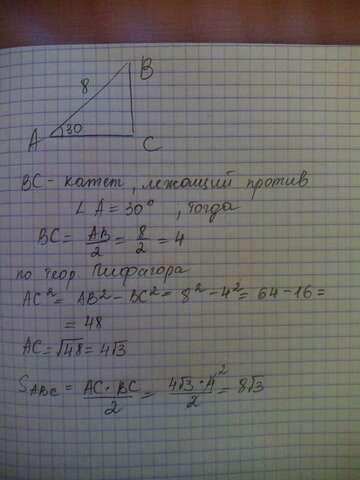 B
8
A 30 C
BC - катет, лежащий против
∠A = 30°, тогда
BC = AB/2 = 8/2 = 4
по теор Пифагора
AC² = AB² - BC² = 8² - 4² = 64 - 16 =
= 48
AC = √48 = 4√3
S ABC = AC · BC/2 = 4√3 · 4²/2 = 8√3